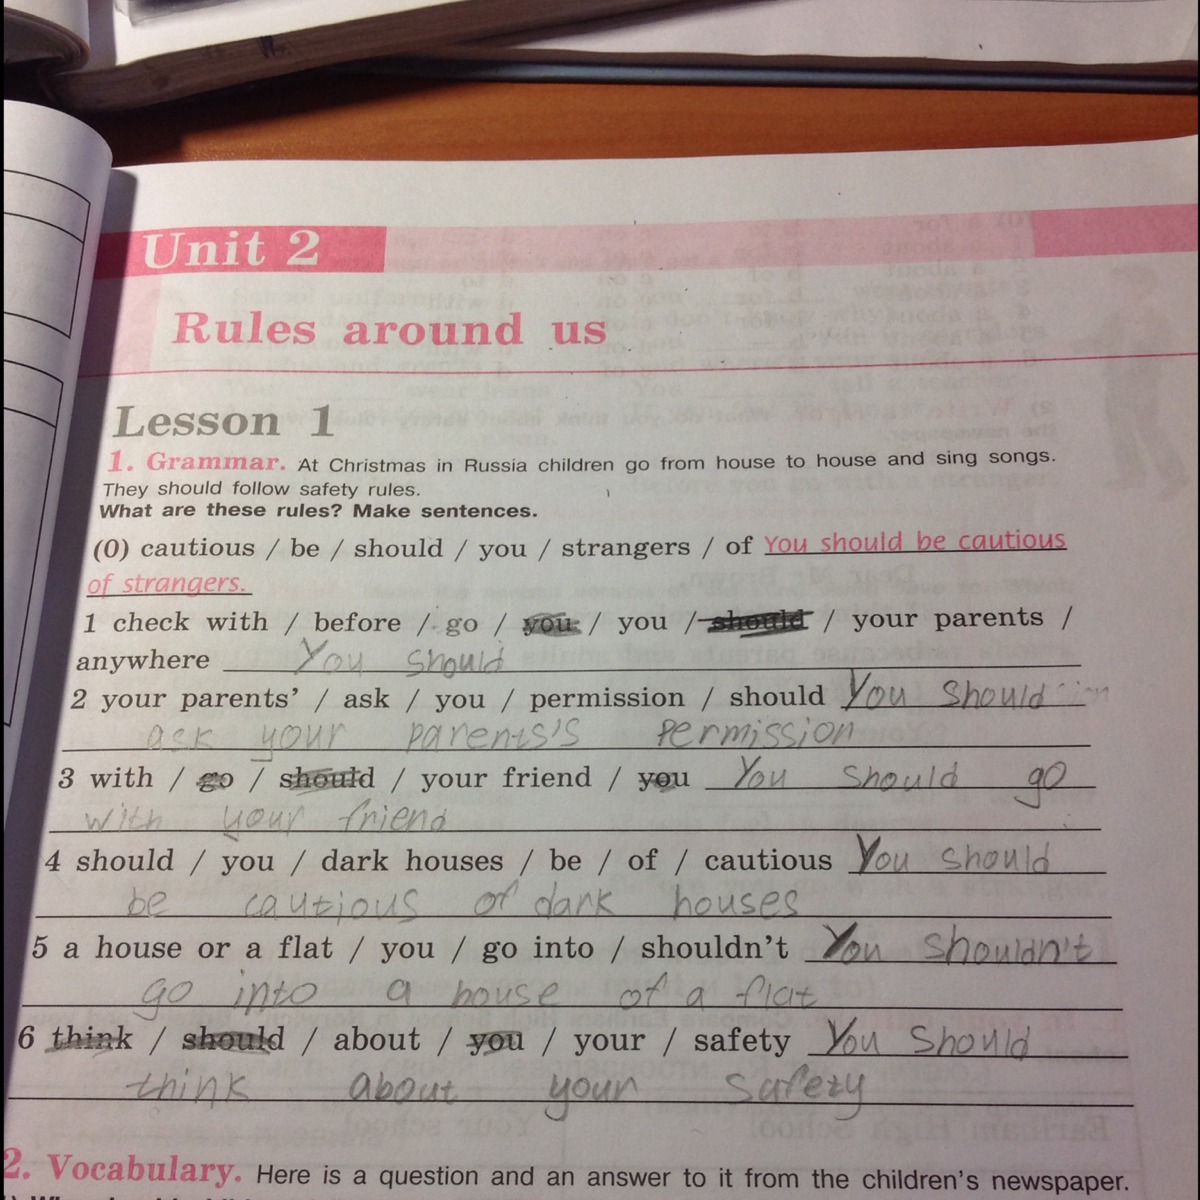 Unit 2
Rules around us
Lesson 1
1. Grammar. At Christmas in Russia children go from house to house and sing songs.
They should follow safety rules.
What are these rules? Make sentences.
(0) cautious / be / should / you / strangers / of You should be cautious
of strangers.
1 check with / before / go / you / you / should / your parents /
anywhere You should
2 your parents' / ask / you / permission / should You should
ask your parents's permission
3 with / go / should / your friend / you You should go
with your friend
4 should / you / dark houses / be / of / cautious You should
be cautious of dark houses
5 a house or a flat / you / go into / shouldn't You shouldn't
go into a house of a flat
6 think / should / about / you / your / safety You should
think about your safety
2. Vocabulary. Here is a question and an answer to it from the children's newspaper.